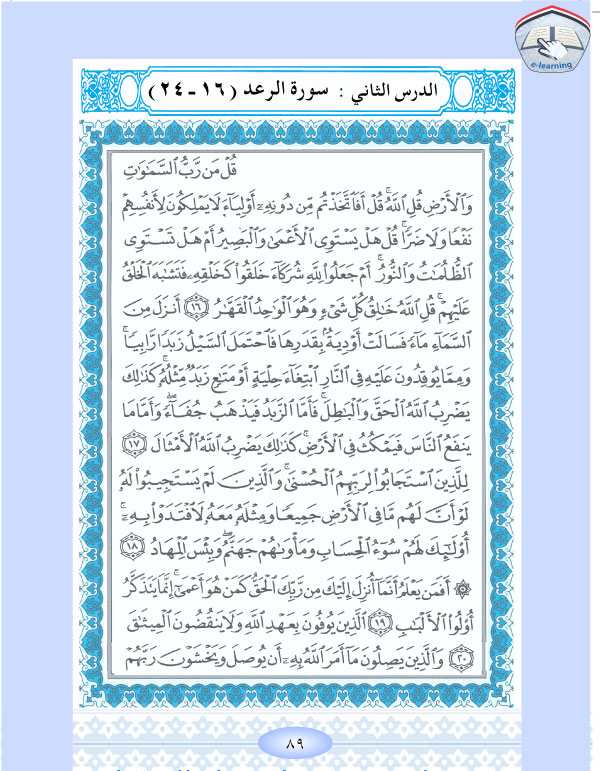 e-learning
الدرس الثاني : سورة الرعد (١٦-٢٤)
قُلْ مَن رَّبُّ ٱلسَّمَٰوَٰتِ
وَٱلْأَرْضِ قُلِ ٱللَّهُ ۚ قُلْ أَفَٱتَّخَذْتُم مِّن دُونِهِۦٓ أَوْلِيَآءَ لَا يَمْلِكُونَ لِأَنفُسِهِمْ
نَفْعًا وَلَا ضَرًّا ۚ قُلْ هَلْ يَسْتَوِى ٱلْأَعْمَىٰ وَٱلْبَصِيرُ أَمْ هَلْ تَسْتَوِى
ٱلظُّلُمَٰتُ وَٱلنُّورُ ۗ أَمْ جَعَلُوا۟ لِلَّهِ شُرَكَآءَ خَلَقُوا۟ كَخَلْقِهِۦ فَتَشَٰبَهَ ٱلْخَلْقُ
عَلَيْهِمْ ۚ قُلِ ٱللَّهُ خَٰلِقُ كُلِّ شَىْءٍ وَهُوَ ٱلْوَٰحِدُ ٱلْقَهَّٰرُ ١٦ أَنزَلَ مِنَ
ٱلسَّمَآءِ مَآءً فَسَالَتْ أَوْدِيَةٌۢ بِقَدَرِهَا فَٱحْتَمَلَ ٱلسَّيْلُ زَبَدًا رَّابِيًا ۚ
وَمِمَّا يُوقِدُونَ عَلَيْهِ فِى ٱلنَّارِ ٱبْتِغَآءَ حِلْيَةٍ أَوْ مَتَٰعٍ زَبَدٌ مِّثْلُهُۥ ۚ كَذَٰلِكَ
يَضْرِبُ ٱللَّهُ ٱلْحَقَّ وَٱلْبَٰطِلَ ۚ فَأَمَّا ٱلزَّبَدُ فَيَذْهَبُ جُفَآءً ۖ وَأَمَّا مَا
يَنفَعُ ٱلنَّاسَ فَيَمْكُثُ فِى ٱلْأَرْضِ ۚ كَذَٰلِكَ يَضْرِبُ ٱللَّهُ ٱلْأَمْثَالَ ١٧
لِلَّذِينَ ٱسْتَجَابُوا۟ لِرَبِّهِمُ ٱلْحُسْنَىٰ ۚ وَٱلَّذِينَ لَمْ يَسْتَجِيبُوا۟ لَهُۥ
لَوْ أَنَّ لَهُم مَّا فِى ٱلْأَرْضِ جَمِيعًا وَمِثْلَهُۥ مَعَهُۥ لَٱفْتَدَوْا۟ بِهِۦٓ ۚ
أُو۟لَٰٓئِكَ لَهُمْ سُوٓءُ ٱلْحِسَابِ وَمَأْوَىٰهُمْ جَهَنَّمُ ۖ وَبِئْسَ ٱلْمِهَادُ ١٨
۞ أَفَمَن يَعْلَمُ أَنَّمَآ أُنزِلَ إِلَيْكَ مِن رَّبِّكَ ٱلْحَقُّ كَمَنْ هُوَ أَعْمَىٰٓ ۚ إِنَّمَا يَتَذَكَّرُ
أُو۟لُوا۟ ٱلْأَلْبَٰبِ ١٩ ٱلَّذِينَ يُوفُونَ بِعَهْدِ ٱللَّهِ وَلَا يَنقُضُونَ ٱلْمِيثَٰقَ
٢٠ وَٱلَّذِينَ يَصِلُونَ مَآ أَمَرَ ٱللَّهُ بِهِۦٓ أَن يُوصَلَ وَيَخْشَوْنَ رَبَّهُمْ
٨٩